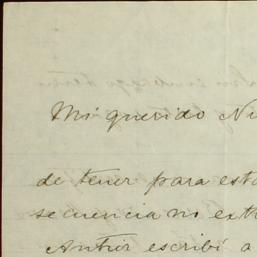 Mi querido Ni
de tener para est
secuencia no ext
Antier escribí a